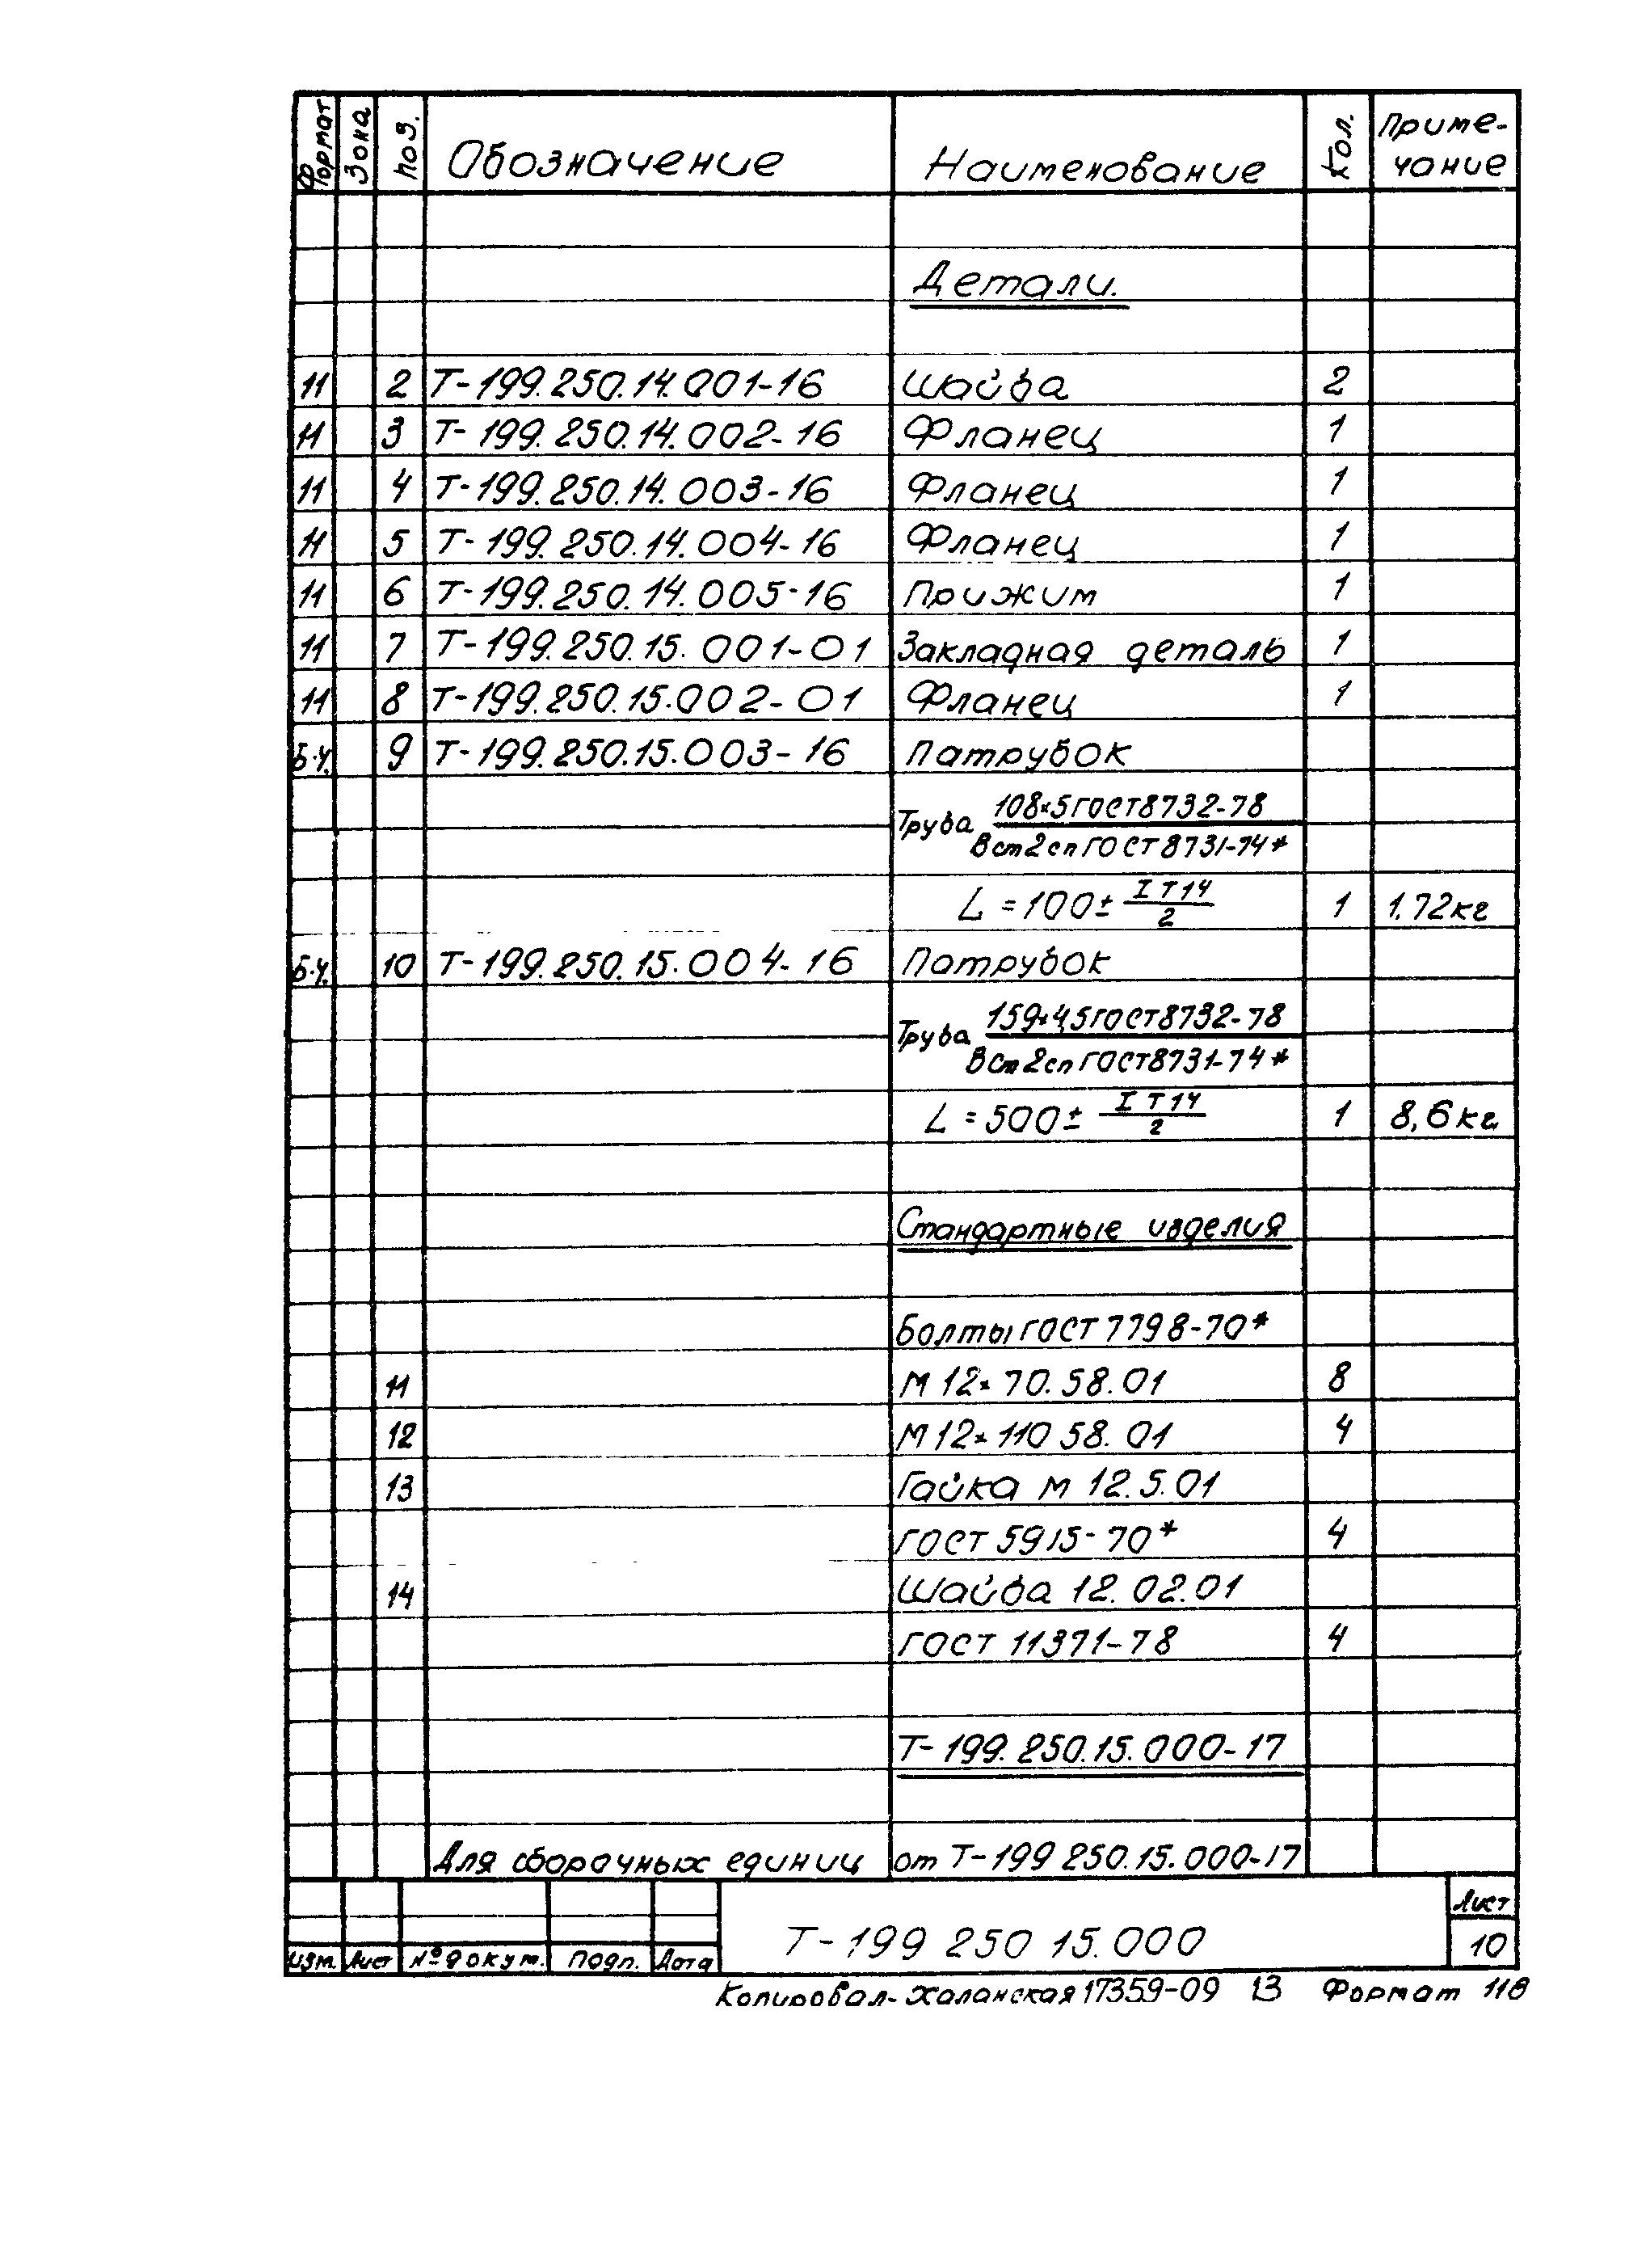 Формат Зона Поз. Обозначение Наименование Кол. Приме-
чание
Детали.
11 2 Т-199.250.14.001-16 Шайба 2
11 3 Т-199.250.14.002-16 Фланец 1
11 4 Т-199.250.14.003-16 Фланец 1
11 5 Т-199.250.14.004-16 Фланец 1
11 6 Т-199.250.14.005-16 Прижим 1
11 7 Т-199.250.15.001-01 Закладная деталь 1
11 8 Т-199.250.15.002-01 Фланец 1
Б.Ч. 9 Т-199.250.15.003-16 Патрубок
108×5 ГОСТ 8732-78
Труба
Вст2сп ГОСТ 8731-74*
L = 100 ± IT14/2 1 1.72кг
Б.Ч. 10 Т-199.250.15.004-16 Патрубок
159×4,5 ГОСТ 8732-78
Труба
Вст2сп ГОСТ 8731-74*
L = 500 ± IT14/2 1 8,6кг.
Стандартные изделия
Болты ГОСТ 7798-70*
11 М12×70.58.01 8
12 М12×110 58.01 4
13 Гайка М 12.5.01
ГОСТ 5915-70* 4
14 Шайба 12.02.01
ГОСТ 11371-78 4
Т-199.250.15.000-17
Для сборочных единиц от Т-199 250.15.000-17
Т-199 250 15.000
Лист
10
Изм. Лист № докум. Подп. Дата
Копировал-Халанская 17359-09 13 Формат 11в